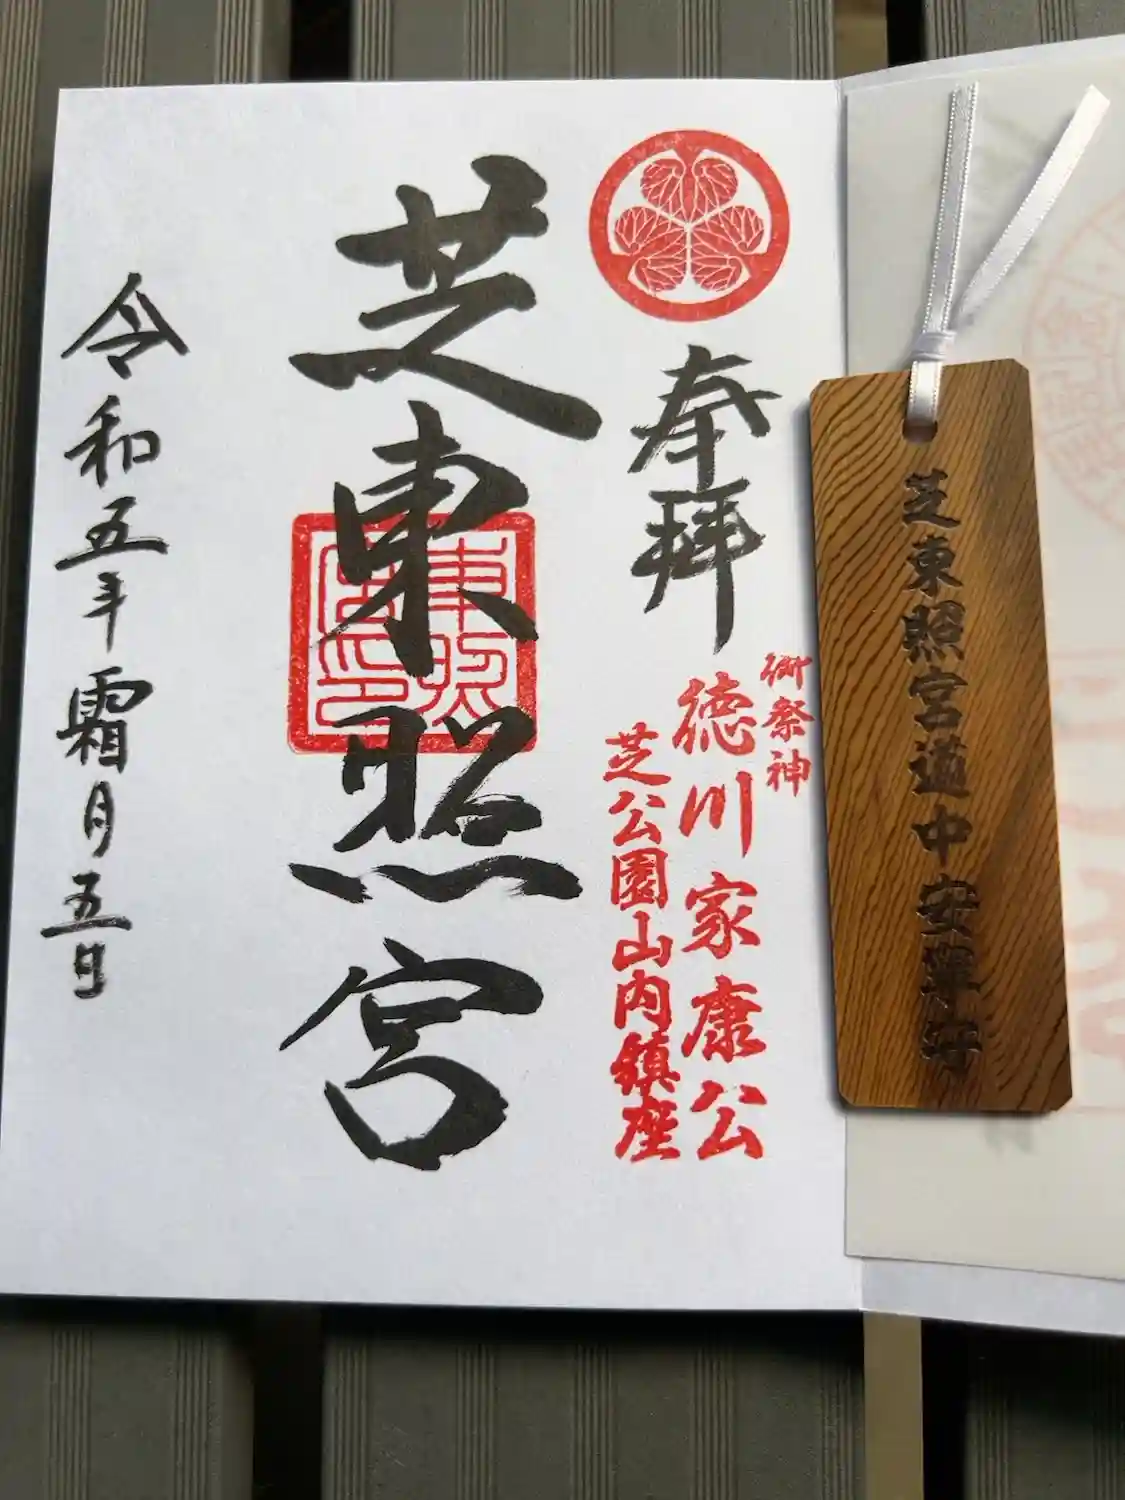 芝東照宮道中安寧守
奉拝
御祭神
徳川家康公
芝公園山内鎮座
芝東照宮
東照宮印
令和五年霜月五日